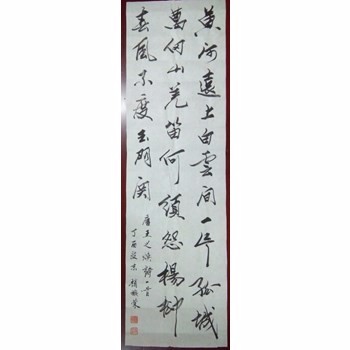 黄河遠上白雲間一片孤城
萬仞山羌笛何須怨楊柳
春風不度玉門関
唐王之渙詩一首
丁酉